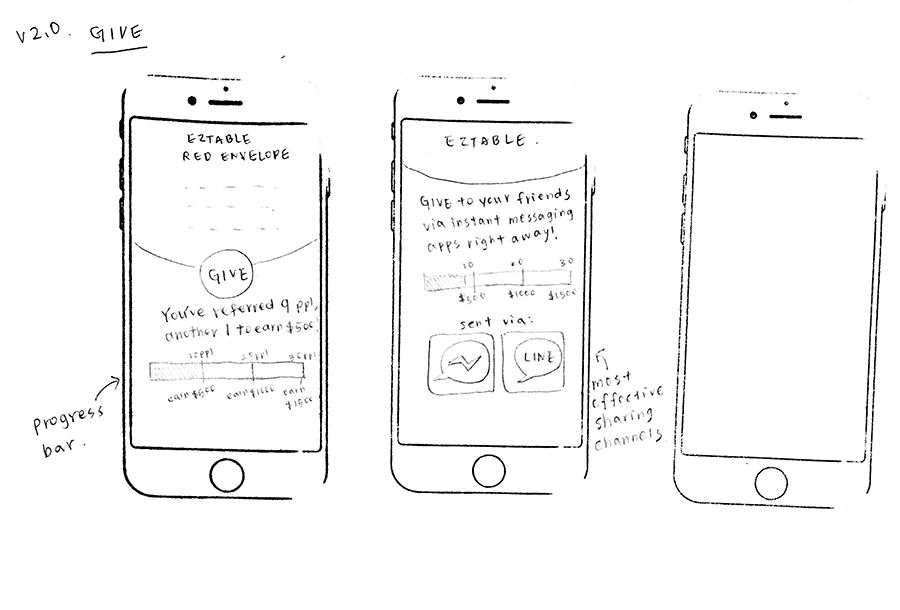 V2.0. GIVE
EZTABLE
RED ENVELOPE
GIVE
You've referred 9 ppl,
another 1 to earn $500!
10ppl 20ppl 30ppl
earn $500 earn $1000 earn
$1500
progress
bar.
EZTABLE.
GIVE to your friends
via instant messaging
apps right away!
10 20 30
$500 $1000 $1500
sent via:
LINE
most
effective
sharing
channels